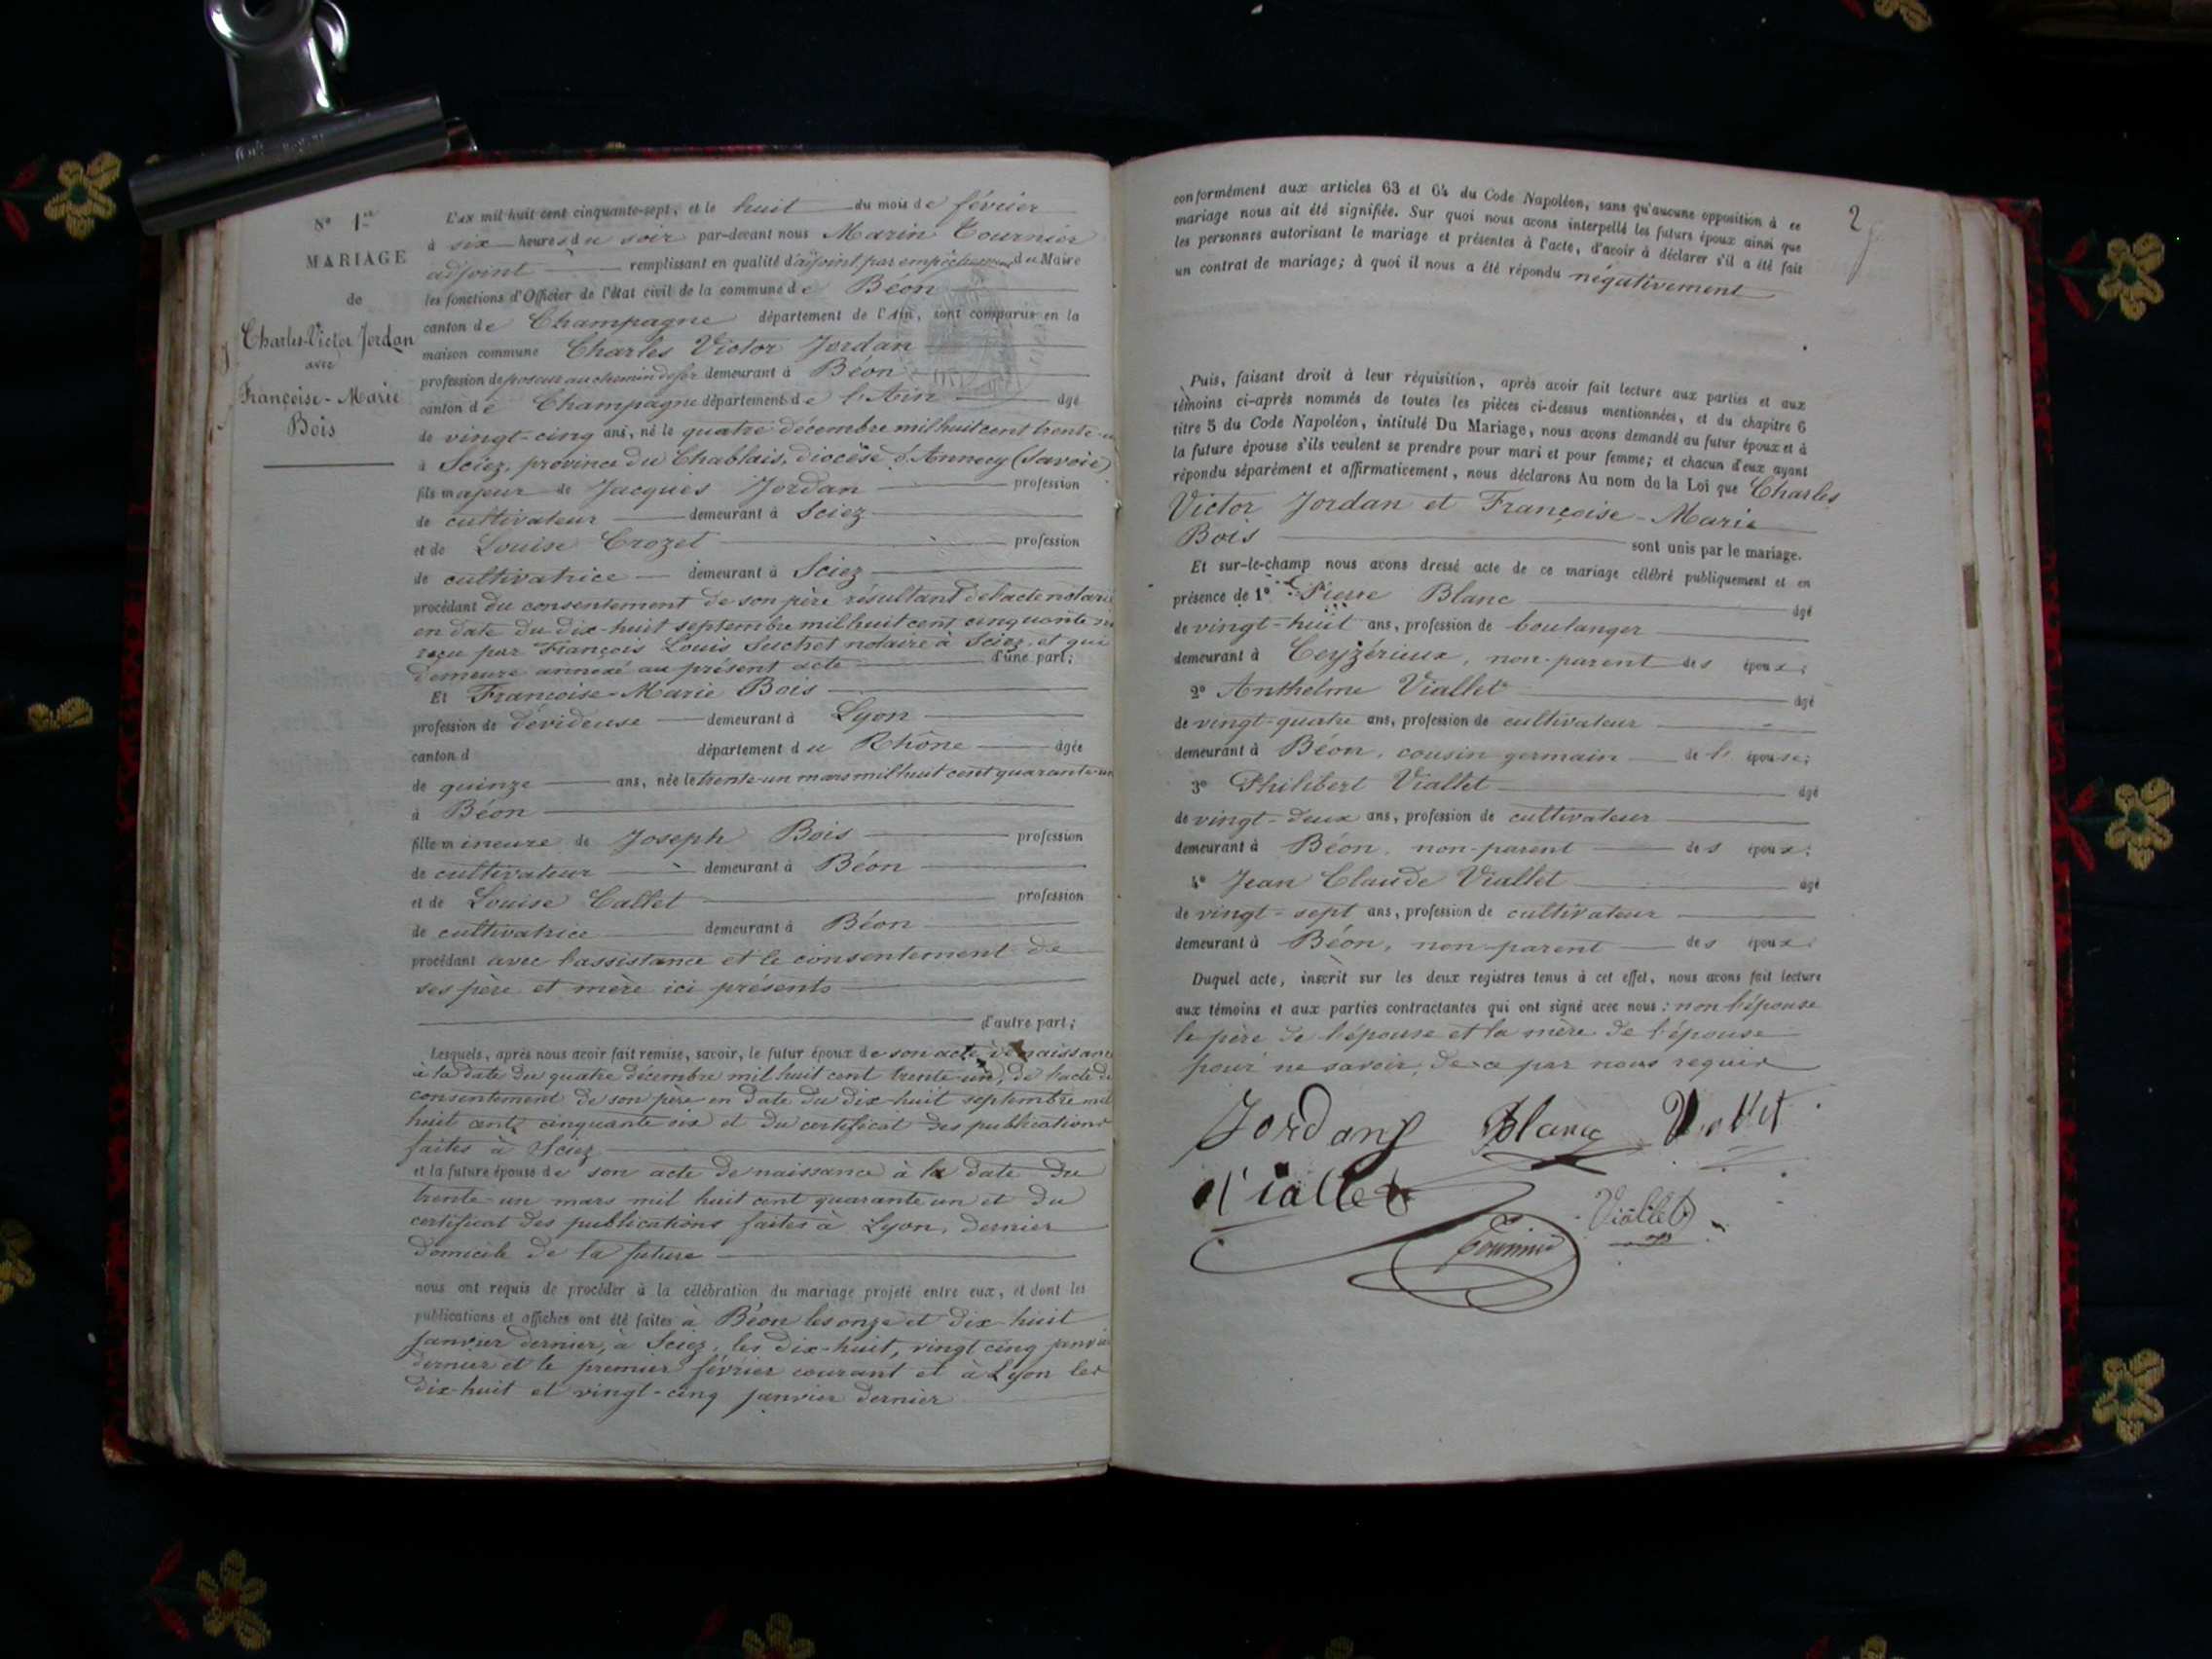 N° 1er
MARIAGE
de
Charles-Victor Jordan
avec
Françoise-Marie
Bois
L'an mil huit cent cinquante-sept, et le huit du mois de février
à six heures du soir par-devant nous Marin Tournier
adjoint remplissant en qualité d'adjoint par empêchement du Maire
les fonctions d'Officier de l'état civil de la commune de Béon
canton de Champagne département de l'Ain, sont comparus en la
maison commune Charles Victor Jordan
profession de poseur au chemin de fer demeurant à Béon
canton de Champagne département de l'Ain âgé
de vingt-cinq ans, né le quatre décembre mil huit cent trente-un
à Sciez, province du Chablais, diocèse d'Annecy (Savoie)
fils majeur de Jacques Jordan profession
de cultivateur demeurant à Sciez
et de Louise Crozet profession
de cultivatrice demeurant à Sciez
procédant du consentement de son père résultant de l'acte notarié
en date du dix-huit septembre mil huit cent cinquante
reçu par François Louis Suchet notaire à Sciez, et qui
demeure annexé au présent acte d'une part;
Et Françoise-Marie Bois
profession de dévideuse demeurant à Lyon
canton d département du Rhône âgée
de quinze ans, née le trente-un mars mil huit cent quarante-un
à Béon
fille mineure de Joseph Bois profession
de cultivateur demeurant à Béon
et de Louise Callet profession
de cultivatrice demeurant à Béon
procédant avec l'assistance et le consentement de
ses père et mère ici présents
d'autre part;
Lesquels, après nous avoir fait remise, savoir, le futur époux de son acte de naissance
à la date du quatre décembre mil huit cent trente-un, de l'acte de
consentement de son père en date du dix-huit septembre mil
huit cent cinquante six et du certificat des publications
faites à Sciez
et la future épouse de son acte de naissance à la date du
trente-un mars mil huit cent quarante un et du
certificat des publications faites à Lyon, dernier
domicile de la future
nous ont requis de procéder à la célébration du mariage projeté entre eux, et dont les
publications et affiches ont été faites à Béon les onze et dix-huit
janvier dernier, à Sciez, les dix-huit, vingt cinq janvier
dernier et le premier février courant et à Lyon les
dix-huit et vingt-cinq janvier dernier
2
conformément aux articles 63 et 64 du Code Napoléon, sans qu'aucune opposition à ce
mariage nous ait été signifiée. Sur quoi nous avons interpellé les futurs époux ainsi que
les personnes autorisant le mariage et présentes à l'acte, d'avoir à déclarer s'il a été fait
un contrat de mariage; à quoi il nous a été répondu négativement
Puis, faisant droit à leur réquisition, après avoir fait lecture aux parties et aux
témoins ci-après nommés de toutes les pièces ci-dessus mentionnées, et du chapitre 6
titre 5 du Code Napoléon, intitulé Du Mariage, nous avons demandé au futur époux et à
la future épouse s'ils veulent se prendre pour mari et pour femme; et chacun d'eux ayant
répondu séparément et affirmativement, nous déclarons Au nom de la Loi que Charles
Victor Jordan et Françoise-Marie
Bois sont unis par le mariage.
Et sur-le-champ nous avons dressé acte de ce mariage célébré publiquement et en
présence de 1° Pierre Blanc âgé
de vingt-huit ans, profession de boulanger
demeurant à Ceyzérieux, non-parent des époux;
2° Anthelme Viallet âgé
de vingt-quatre ans, profession de cultivateur
demeurant à Béon, cousin germain de l'épouse;
3° Philibert Viallet âgé
de vingt-deux ans, profession de cultivateur
demeurant à Béon, non-parent des époux;
4° Jean Claude Viallet âgé
de vingt-sept ans, profession de cultivateur
demeurant à Béon, non-parent des époux.
Duquel acte, inscrit sur les deux registres tenus à cet effet, nous avons fait lecture
aux témoins et aux parties contractantes qui ont signé avec nous: non l'épouse
le père de l'épouse et la mère de l'épouse
pour ne savoir, de ce par nous requis
Jordan Blanc Viallet
Viallet
Viallet
Tournier